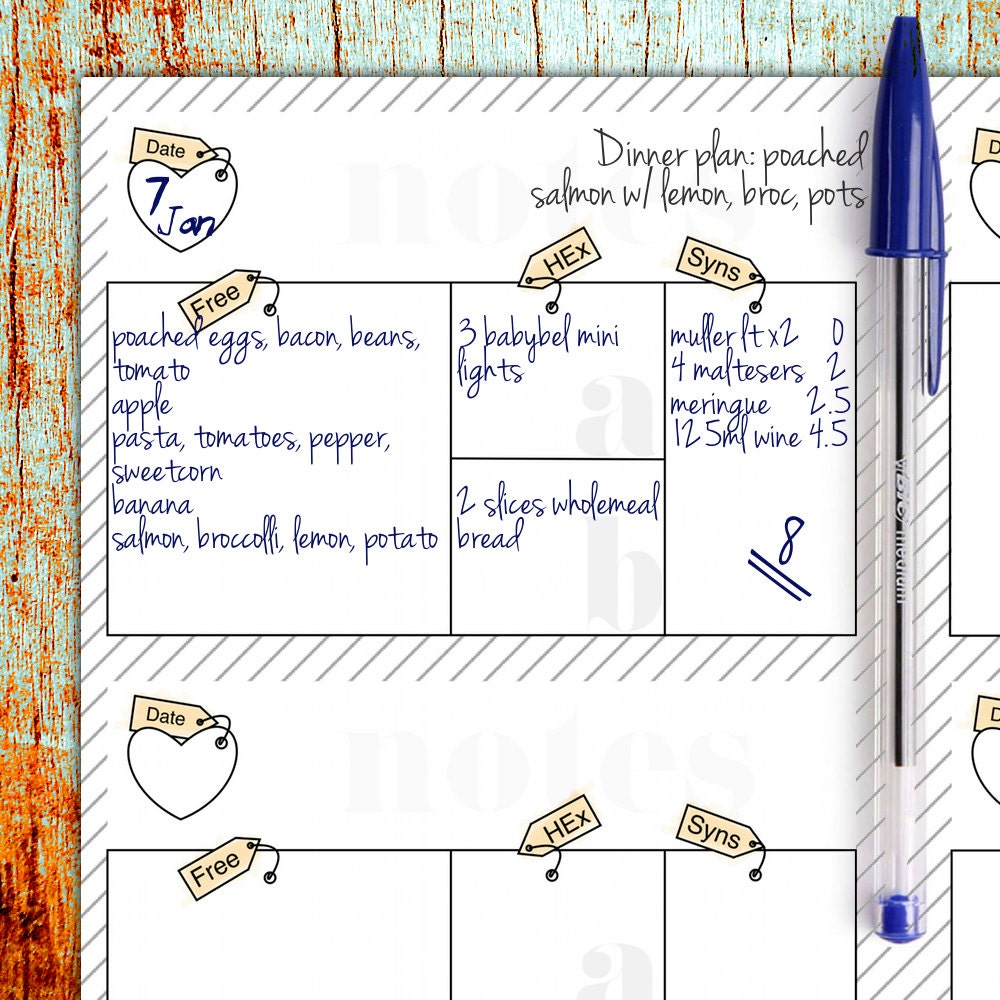 Date
7
Jan
notes
Dinner plan: poached
salmon w/ lemon, broc, pots
Free
HEx
Syns
poached eggs, bacon, beans,
tomato
apple
pasta, tomatoes, pepper,
sweetcorn
banana
salmon, broccolli, lemon, potato
3 babybel mini
lights
a
2 slices wholemeal
bread
b
muller lt x2 0
4 maltesers 2
meringue 2.5
125ml wine 4.5
8
Date
notes
Free
HEx
Syns
a
D
D